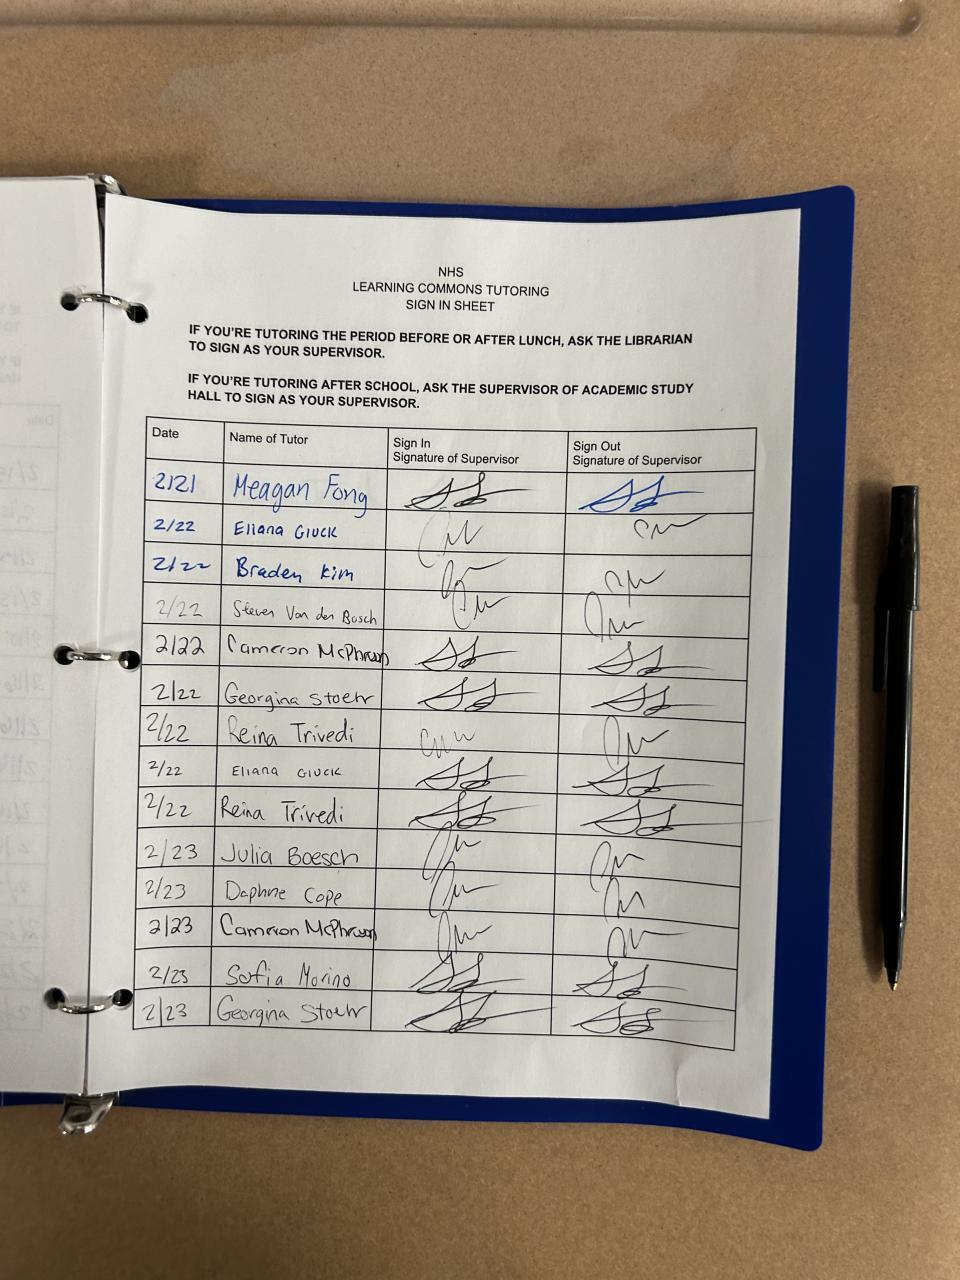 NHS
LEARNING COMMONS TUTORING
SIGN IN SHEET
IF YOU'RE TUTORING THE PERIOD BEFORE OR AFTER LUNCH, ASK THE LIBRARIAN
TO SIGN AS YOUR SUPERVISOR.
IF YOU'RE TUTORING AFTER SCHOOL, ASK THE SUPERVISOR OF ACADEMIC STUDY
HALL TO SIGN AS YOUR SUPERVISOR.
Date Name of Tutor Sign In Sign Out
Signature of Supervisor Signature of Supervisor
2/21 Meagan Fong
2/22 Eliana Gluck
2/22 Braden Kim
2/22 Steven Van den Bosch
2/22 Cameron
2/22 Georgina Stoehr
2/22 Reina Trivedi
2/22 Eliana Gluck
2/22 Reina Trivedi
2/23 Julia Boesch
2/23 Daphne Cope
2/23 Cameron
2/23 Sofia Morino
2/23 Georgina Stoehr